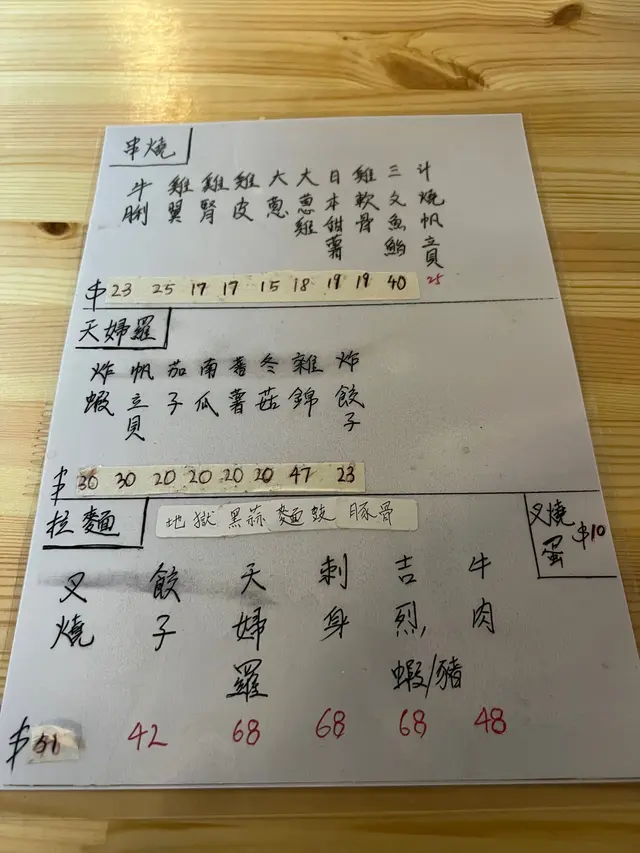 串燒
牛脷
雞翼
雞腎
雞皮
大蔥
大蔥雞
日本甜薯
雞軟骨
三文魚鮨
汁燒帆立貝
$ 23 25 17 17 15 18 19 19 40 25
天婦羅
炸蝦
帆立貝
茄子
南瓜
蕃薯
冬菇
雜錦
炸餃子
$ 30 30 20 20 20 20 47 23
拉麵
地獄 黑蒜 麵豉 豚骨
叉燒蛋 $10
叉燒
餃子
天婦羅
刺身
吉烈蝦/豬
牛肉
$ 42 68 68 68 48